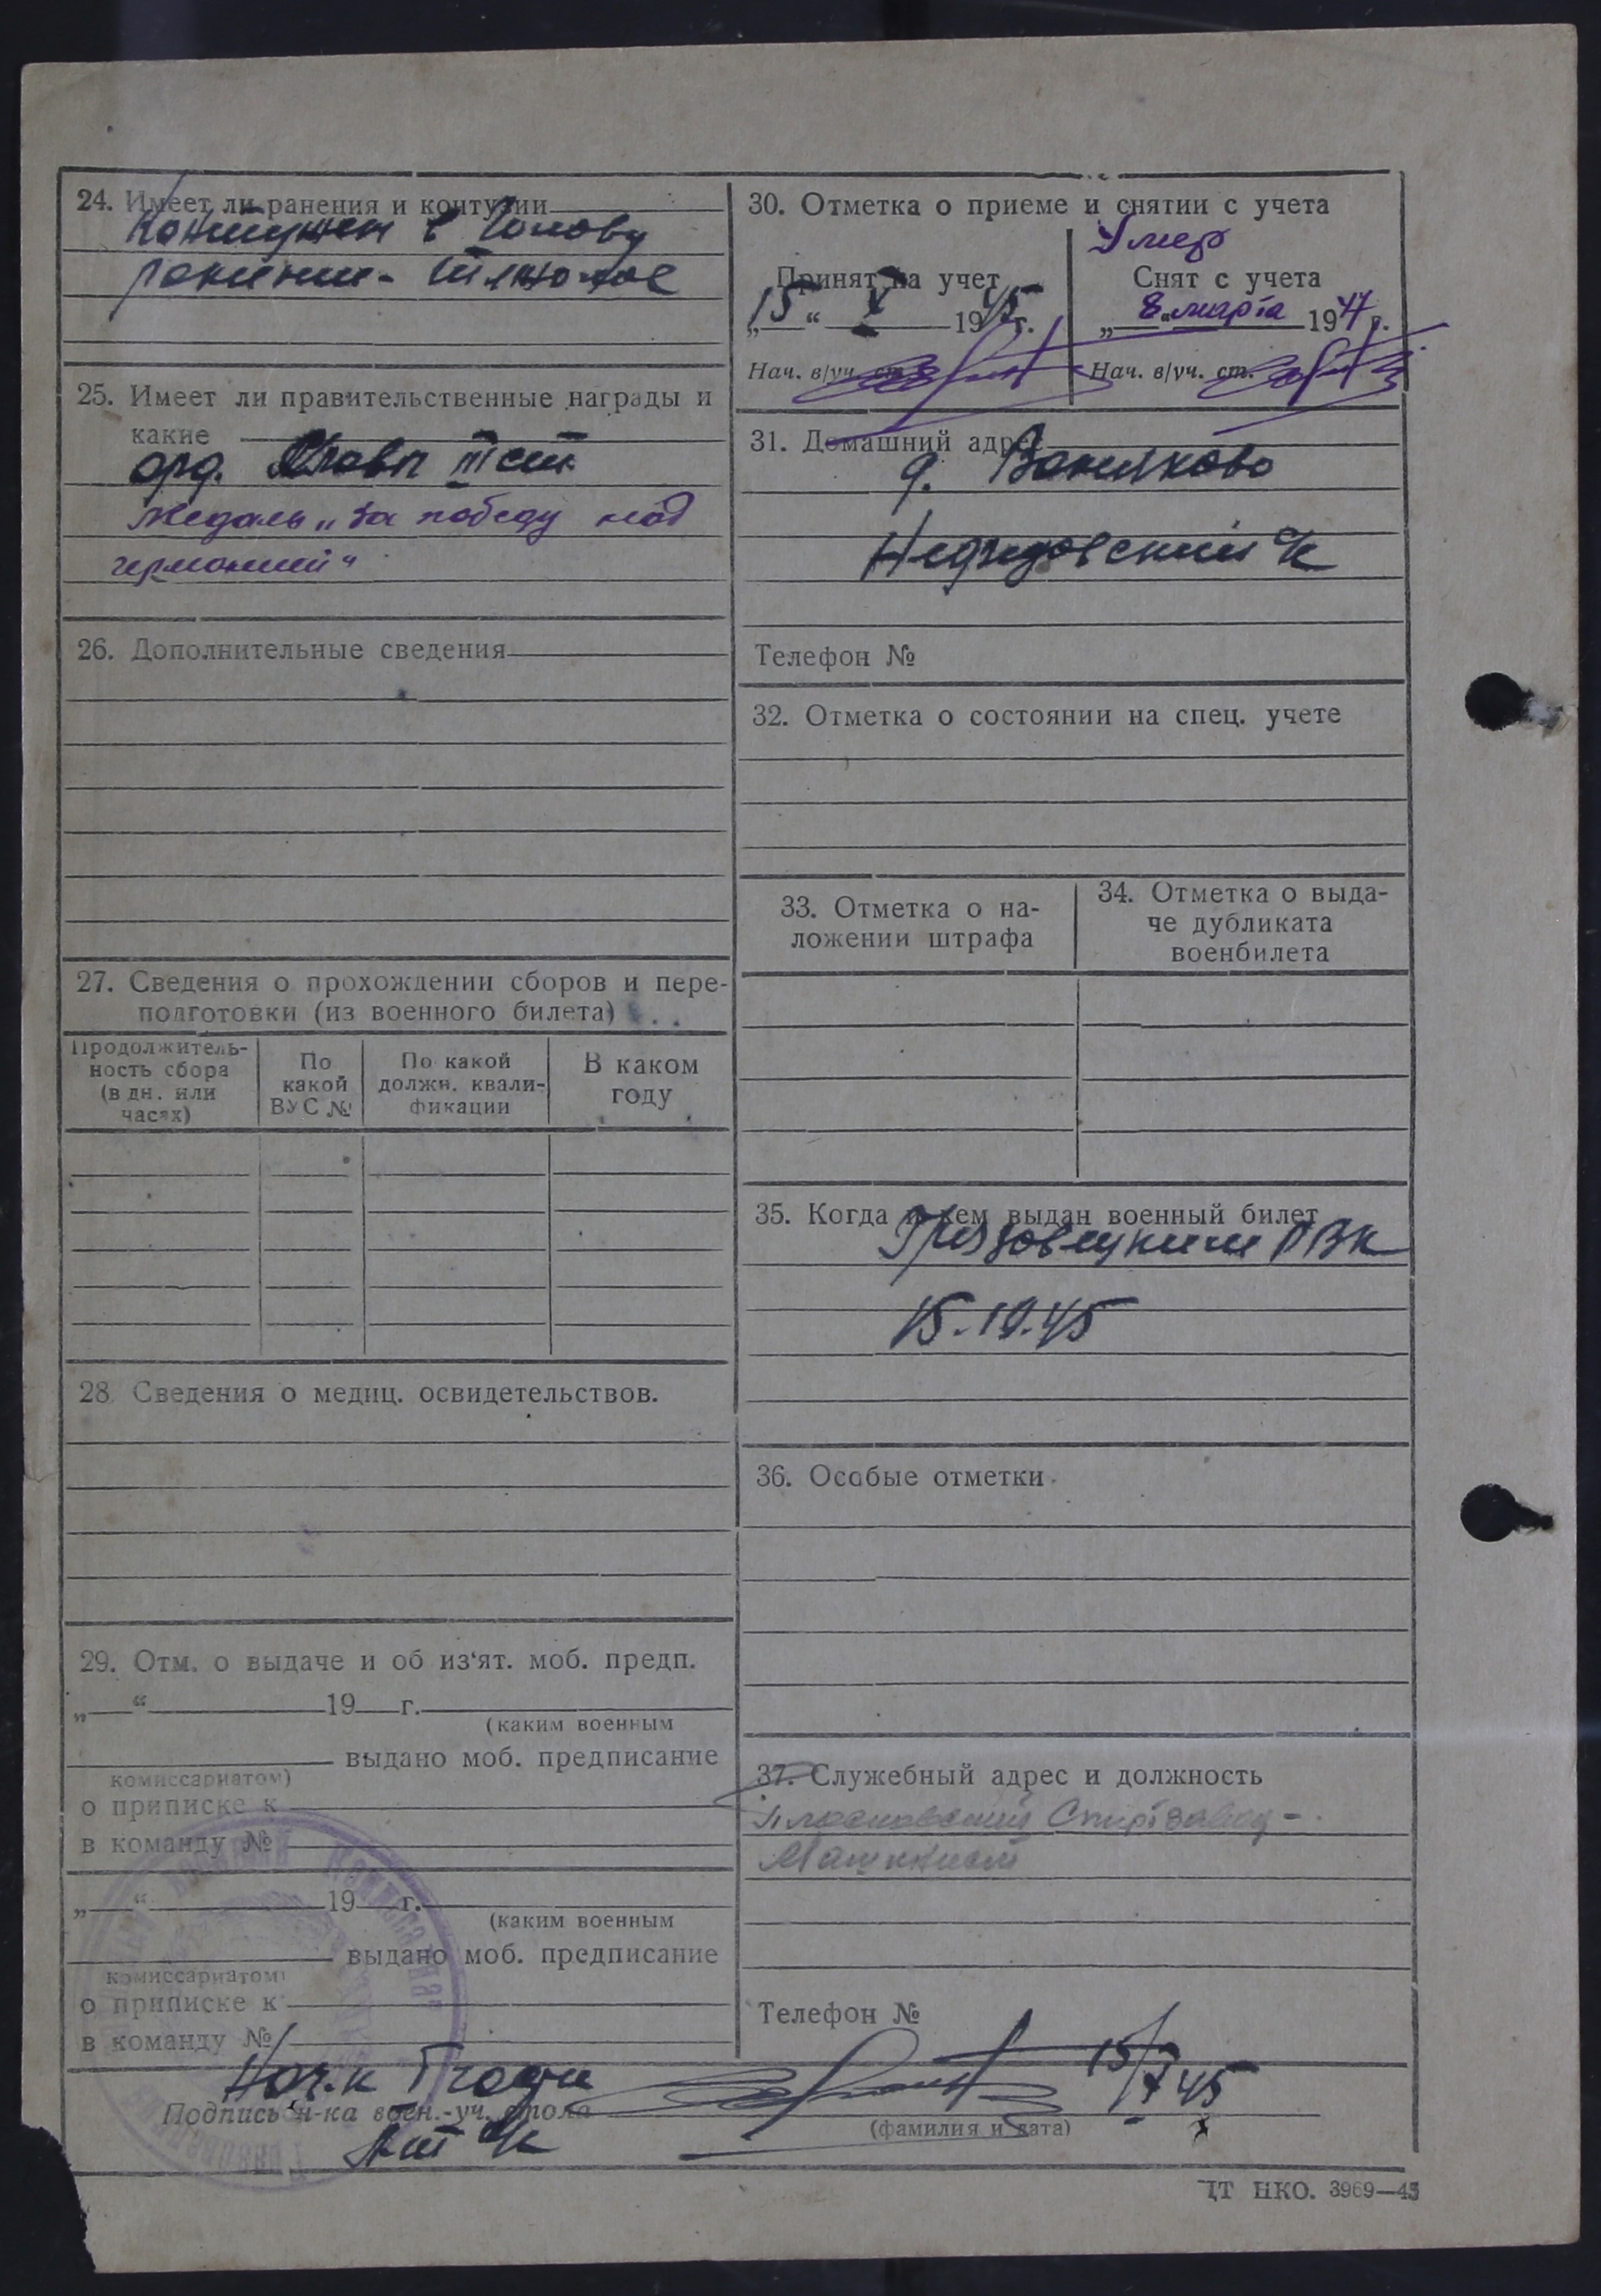 24. Имеет ли ранения и контузии
Контужен в голову
ранение - тяжолое
25. Имеет ли правительственные награды и
какие
орд. Славы III ст.
Медаль „За победу над
германией“
26. Дополнительные сведения
27. Сведения о прохождении сборов и пере-
подготовки (из военного билета)
Продолжитель-
ность сбора
(в дн. или
часах)
По
какой
ВУС №
По какой
должн. квали-
фикации
В каком
году
28. Сведения о медиц. освидетельствов.
29. Отм. о выдаче и об из‘ят. моб. предп.
„ “ 19 г.
(каким военным
выдано моб. предписание
комиссариатом)
о приписке к
в команду №
„ “ 19 г.
(каким военным
выдано моб. предписание
комиссариатом)
о приписке к
в команду №
30. Отметка о приеме и снятии с учета
Умер
Принят на учет
„15“ X 1945 г.
Нач. в/уч. ст.
Снят с учета
„8“ марта 1947 г.
Нач. в/уч. ст.
31. Домашний адрес
д.
с/с
Телефон №
32. Отметка о состоянии на спец. учете
33. Отметка о на-
ложении штрафа
34. Отметка о выда-
че дубликата
военбилета
35. Когда и кем выдан военный билет
Грязовецким РВК
15.10.45
36. Особые отметки
37. Служебный адрес и должность
Спиртзавод -
Машинист
Телефон №
Нач.
Подпись н-ка воен.-уч. стола
15/X 45
(фамилия и дата)
ЦТ НКО. 3969—45